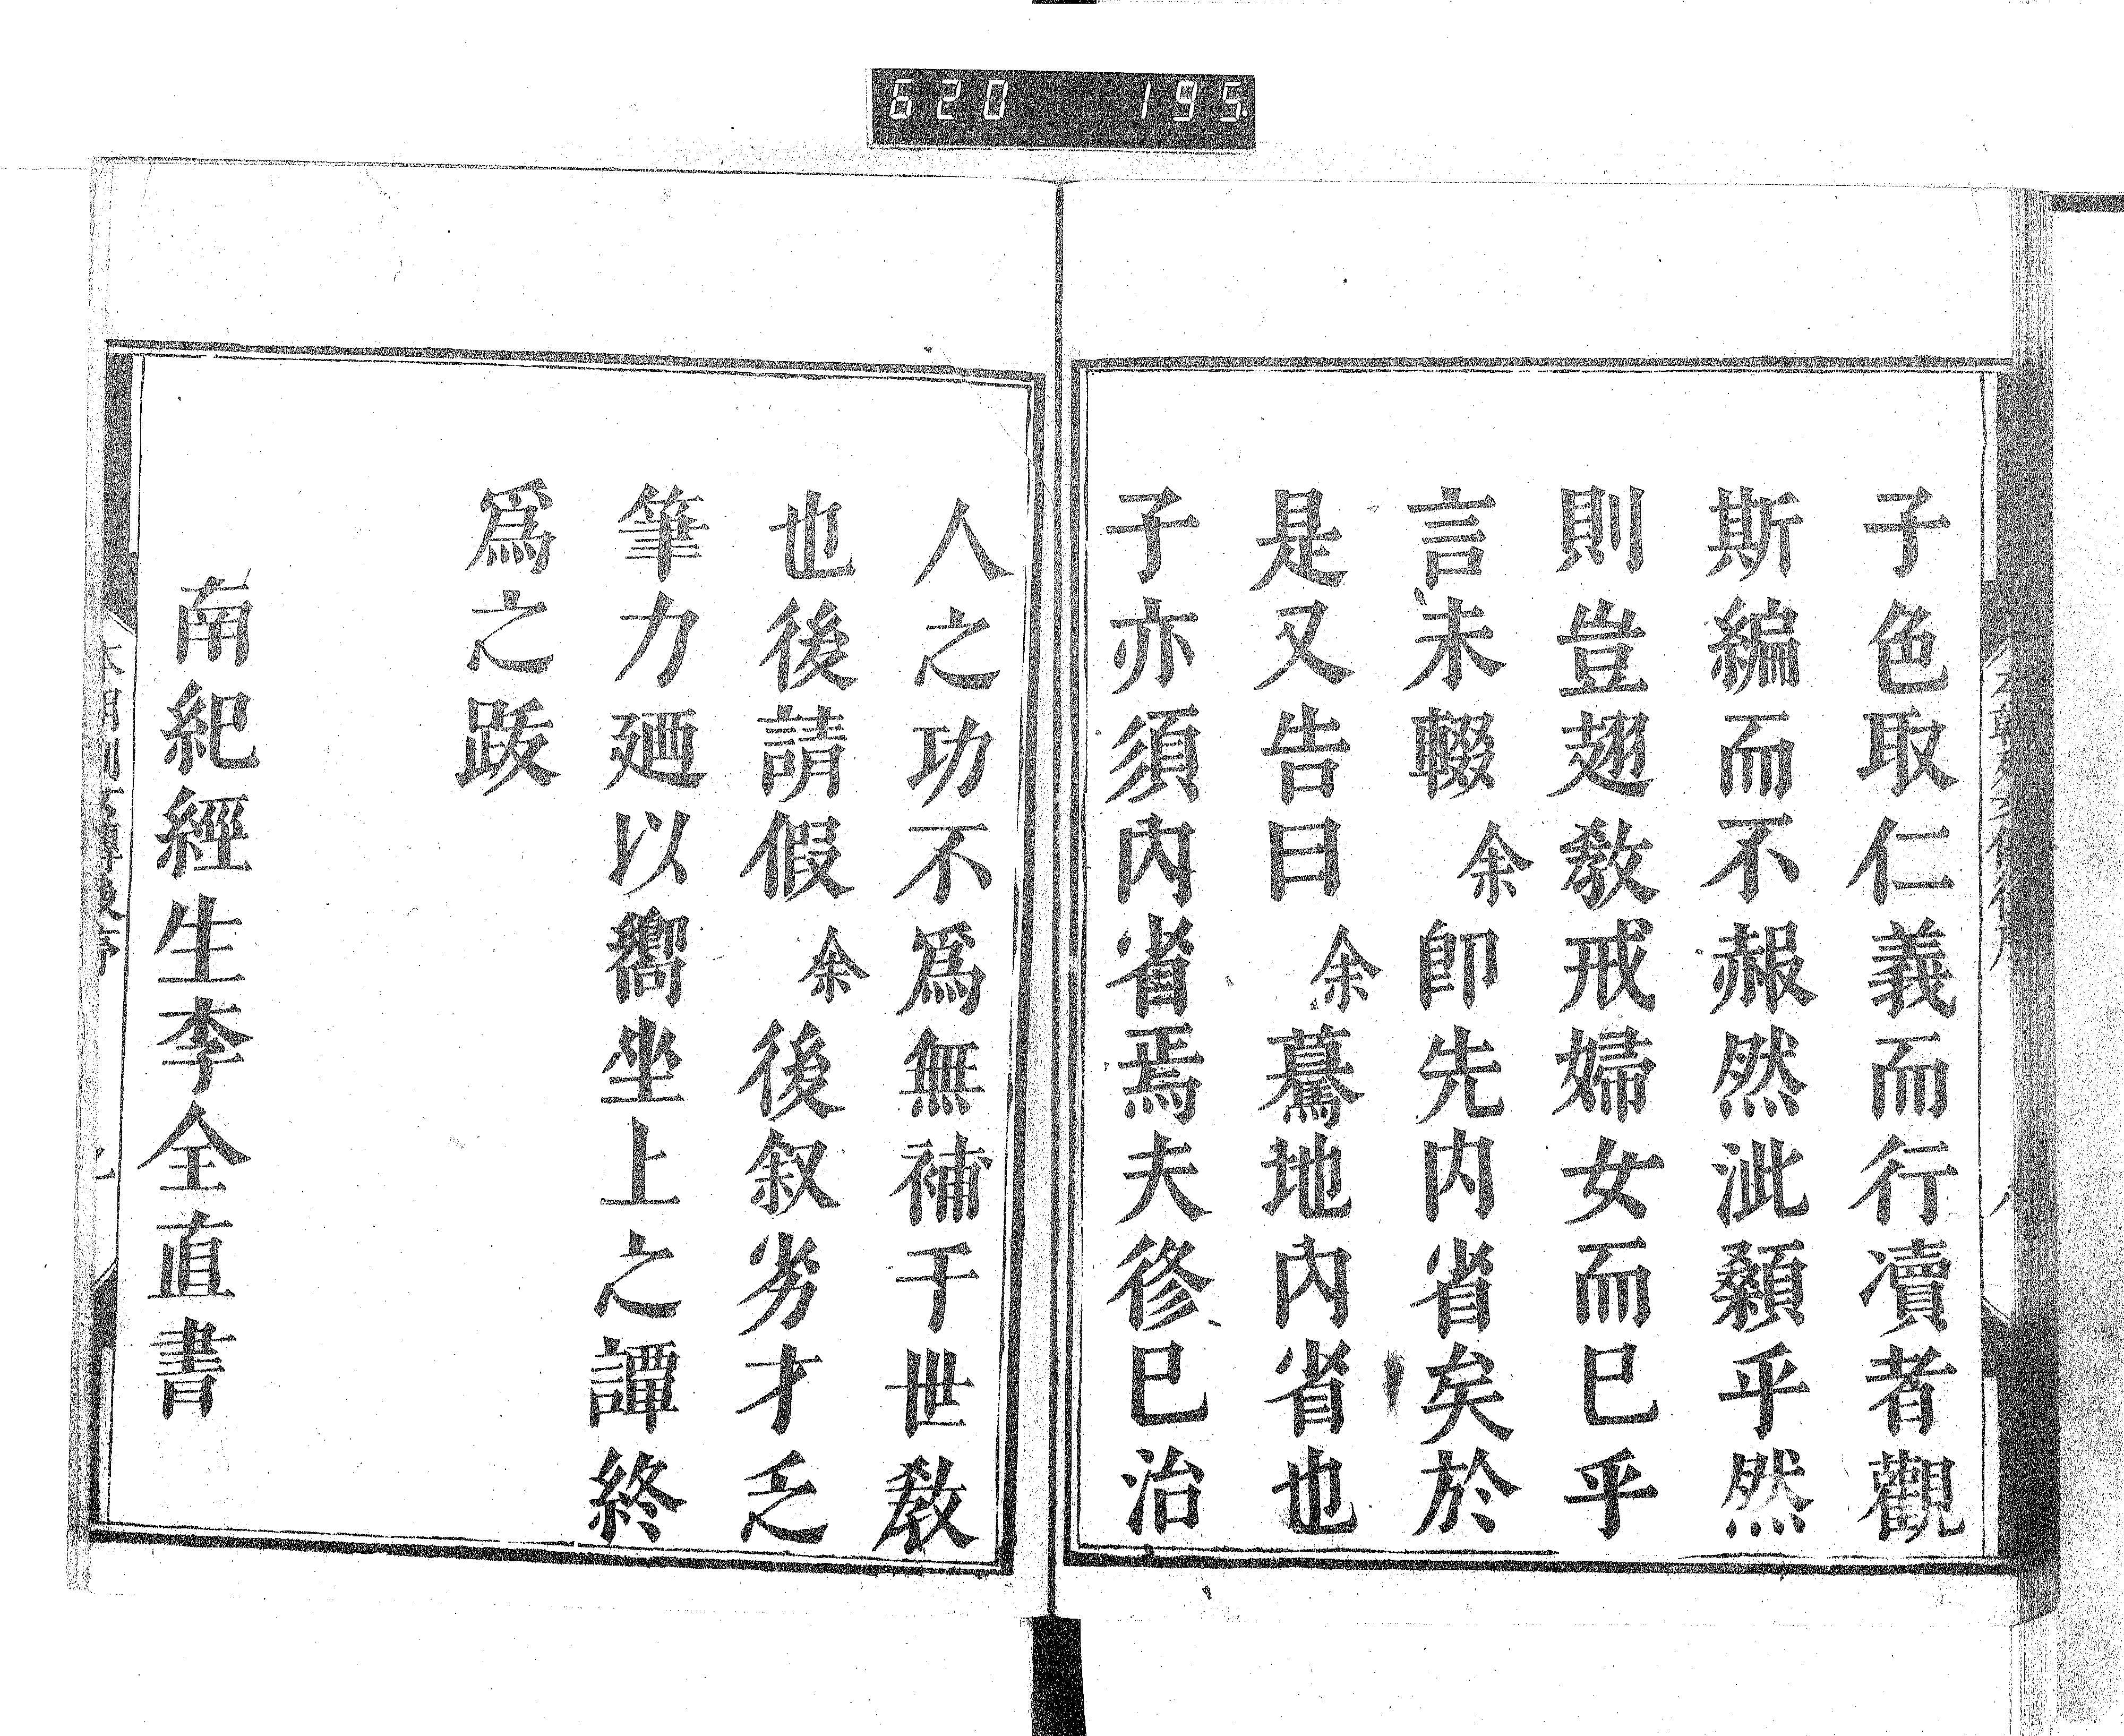 620 195.
子色取仁義而行凟者觀
斯編而不赧然泚顙乎然
則豈翅教戒婦女而巳乎
言未輟余卽先内省矣於
是又告曰余驀地內省也
子亦須內省焉夫修巳治
人之功不爲無補于世教
也後請假余後叙劣才乏
筆力廼以嚮坐上之譚終
爲之跋
南紀經生李全直書